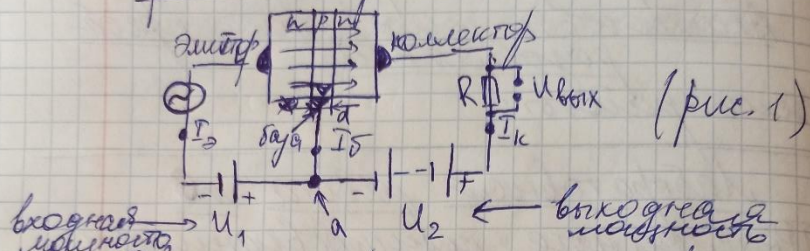 n p n
эмиттер
коллектор
R
Uвых
(рис. 1)
d
база
Iэ
Iб
Iк
- +
- +
U₁
a
U₂
входная
мощность
выходная
мощность